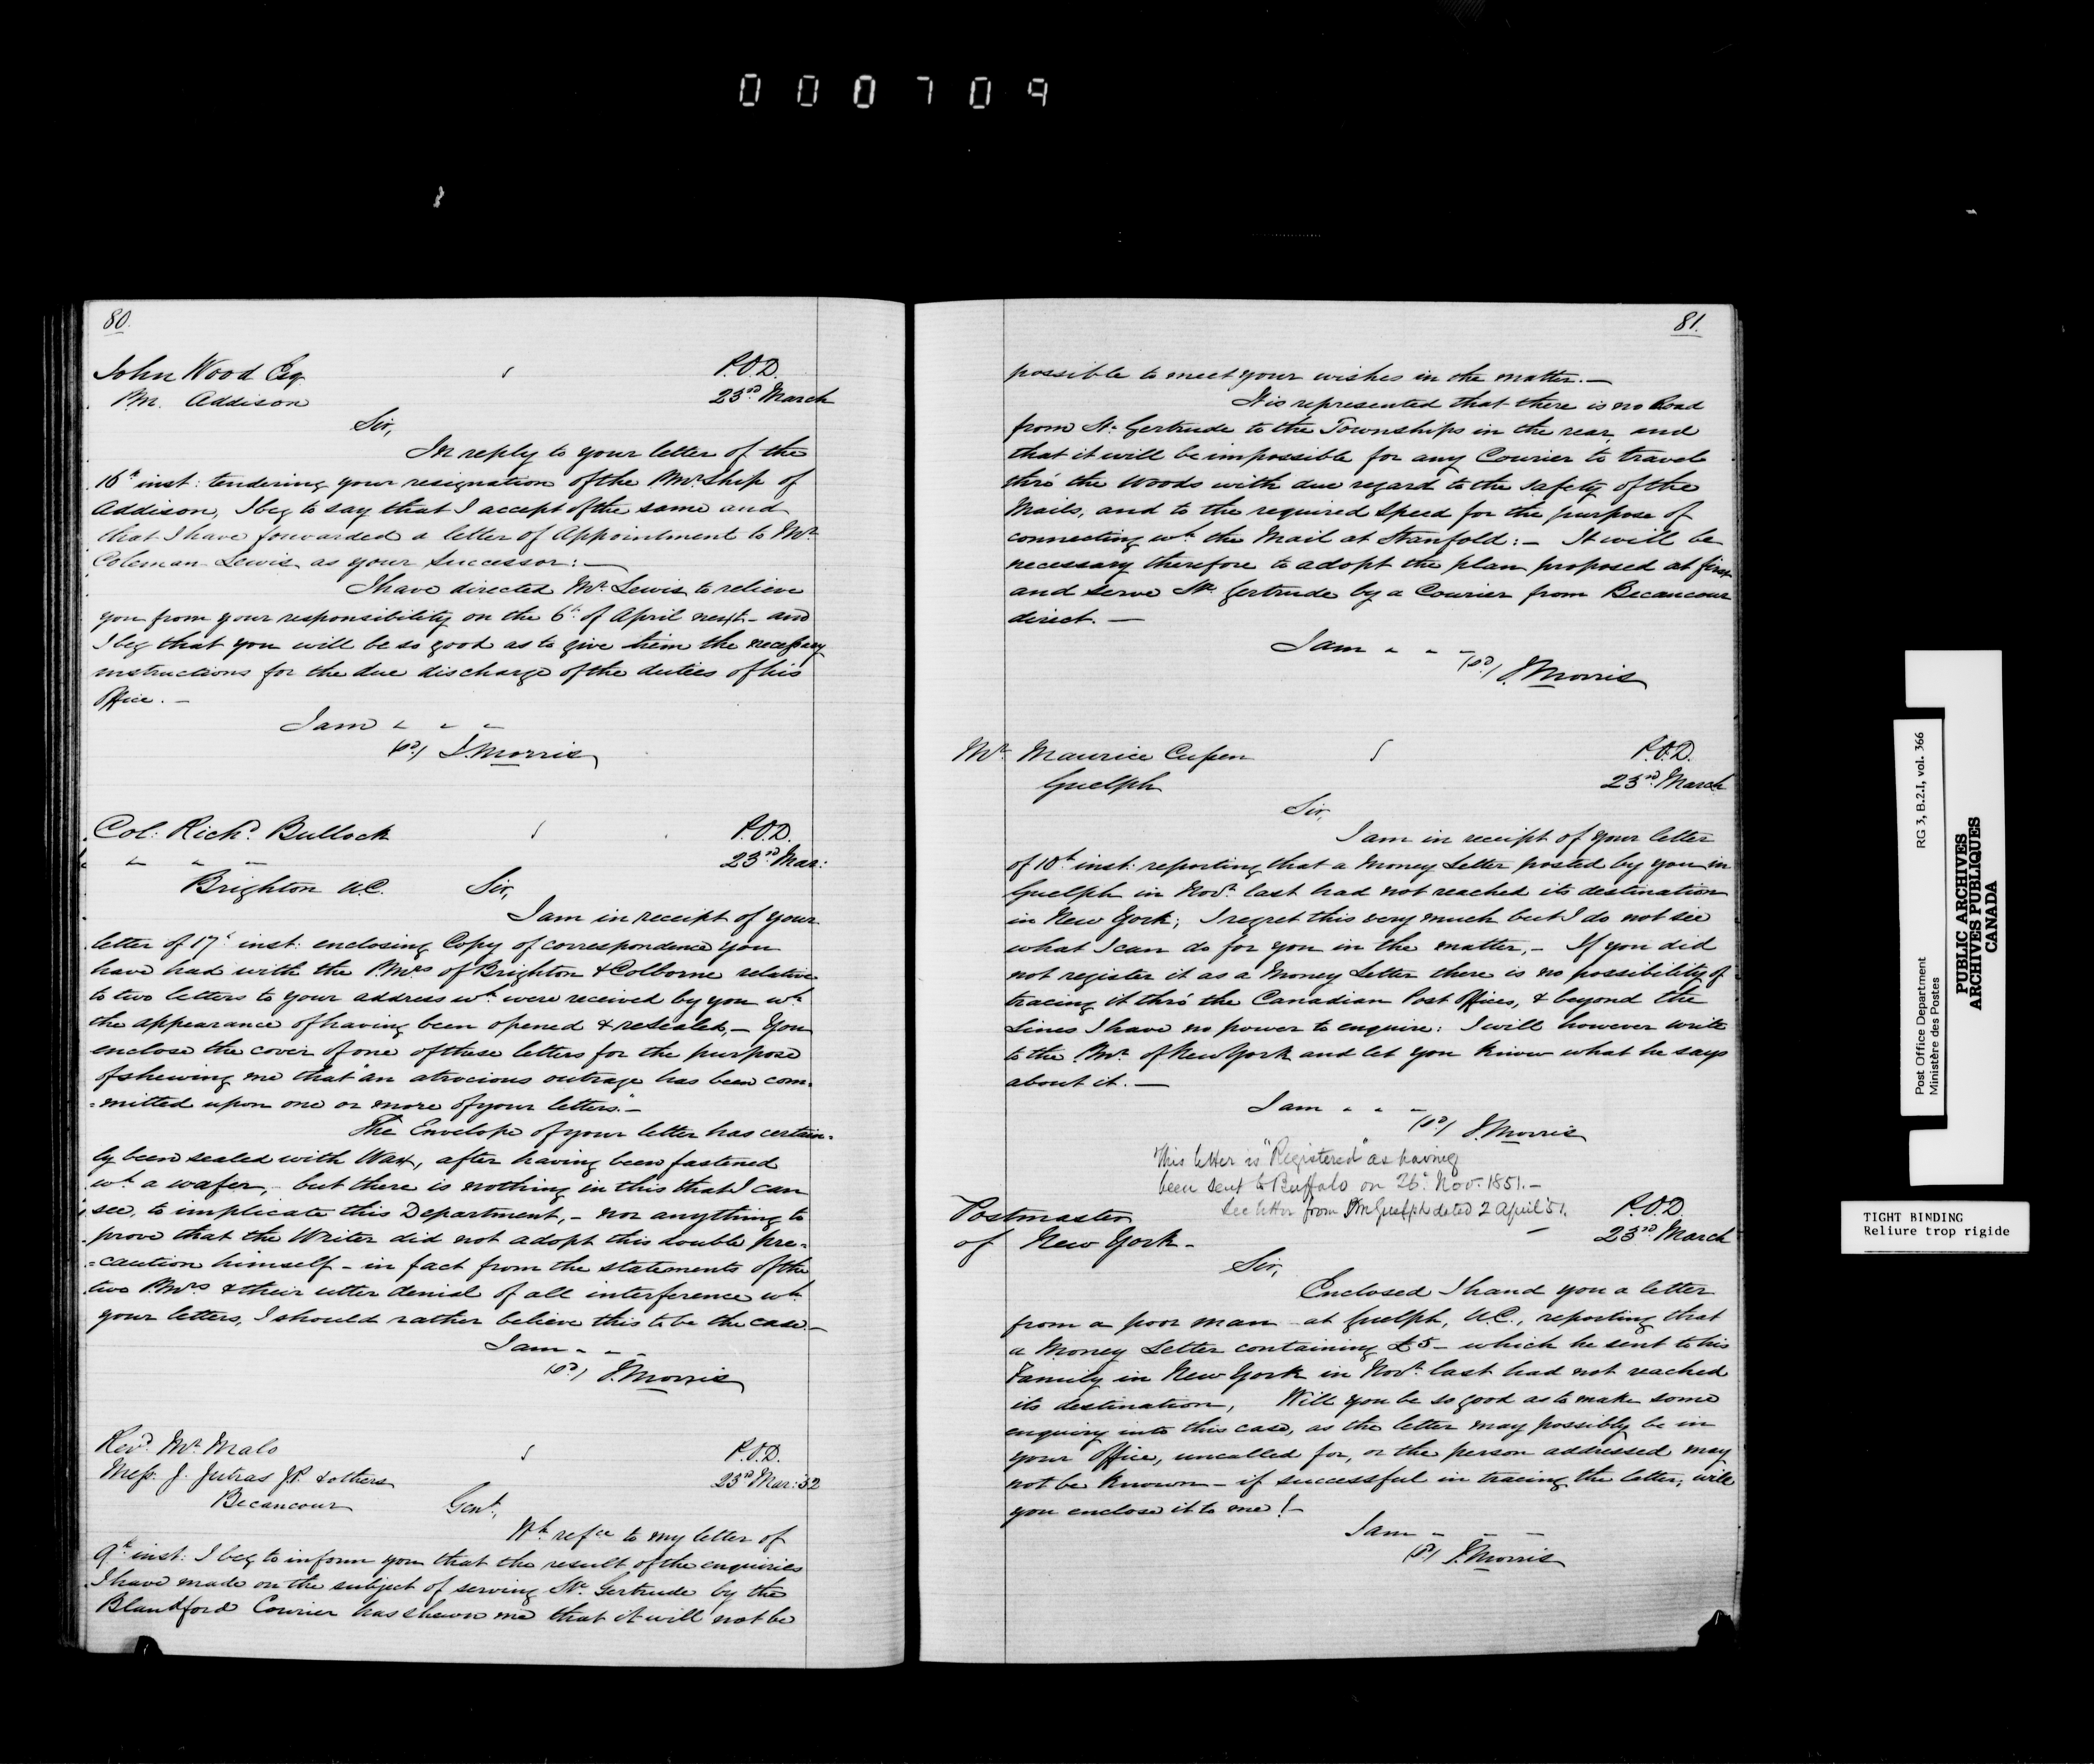 000709
80.
John Wood Esq
P.O.D.
PM. Addison
23rd March
Sir,
In reply to your letter of the
16th inst: tendering your resignation of the PMr Ship of
Addison, I beg to say that I accept of the same and
that I have forwarded a letter of Appointment to Mr
Coleman Lewis as your Successor: —
I have directed Mr Lewis to relieve
you from your responsibility on the 6th of April next - and
I beg that you will be so good as to give him the necessary
instructions for the due discharge of the duties of his
Office. -
I am " " "
(sd) J. Morris
Col: Richd Bullock
P.O.D.
" " "
23rd Mar:
Brighton U.C. Sir,
I am in receipt of your
letter of 17th inst: enclosing Copy of correspondence you
have had with the PMrs of Brighton & Colborne relative
to two letters to your address wh were received by you wh
the appearance of having been opened & resealed, - You
enclose the cover of one of these letters for the purpose
of shewing me that "an atrocious outrage has been com-
-mitted upon one or more of your letters." -
The Envelope of your letter has certain-
ly been sealed with Wax, after having been fastened
wh a wafer, - but there is nothing in this that I can
see, to implicate this Department, - nor anything to
prove that the Writer did not adopt this double pre-
-caution himself - in fact from the statements of the
two PMrs & their utter denial of all interference wh
your letters, I should rather believe this to be the case -
I am " " "
(sd) J. Morris
Revd Mr Malo
P.O.D.
Mess. J. Jutras J.P. & others
23rd Mar: 52
Becancour
Gent,
Wh refce to my letter of
9th inst: I beg to inform you that the result of the enquiries
I have made on the subject of serving Ste Gertrude by the
Blandford Courier has shewn me that it will not be
81.
possible to meet your wishes in the matter. —
It is represented that there is no Road
from St. Gertrude to the Townships in the rear, and
that it will be impossible for any Courier to travel
thro' the Woods with due regard to the safety of the
Mails, and to the required speed for the purpose of
connecting wh the Mail at Stanfold: - It will be
necessary therefore to adopt the plan proposed at first
and serve Ste Gertrude by a Courier from Becancour
direct. —
I am " " "
(sd) J. Morris
Mr Maurice Cussen
P.O.D.
Guelph
23rd March
Sir,
I am in receipt of your letter
of 10th inst: reporting that a Money Letter posted by you in
Guelph in Novr last had not reached its destination
in New York; I regret this very much but I do not see
what I can do for you in the matter, - If you did
not register it as a Money Letter there is no possibility of
tracing it thro' the Canadian Post Offices, & beyond the
Lines I have no power to enquire: I will however write
to the PMr of New York and let you know what he says
about it. —
I am " " "
(sd) J. Morris
This letter is "Registered" as having
been sent to Buffalo on 26th Nov. 1851. -
See letter from PM Guelph dated 2 April 51.
Postmaster
P.O.D.
of New York -
23rd March
Sir,
Enclosed I hand you a letter
from a poor man at Guelph, U.C., reporting that
a Money Letter containing £5 - which he sent to his
Family in New York in Novr last had not reached
its destination, Will you be so good as to make some
enquiry into this case, as the letter may possibly be in
your Office, uncalled for, or the person addressed may
not be known - if successful in tracing the letter, will
you enclose it to me! -
I am - - -
(sd) J. Morris
Post Office Department RG 3, B.2.I, vol. 366
Ministère des Postes
PUBLIC ARCHIVES
ARCHIVES PUBLIQUES
CANADA
TIGHT BINDING
Reliure trop rigide